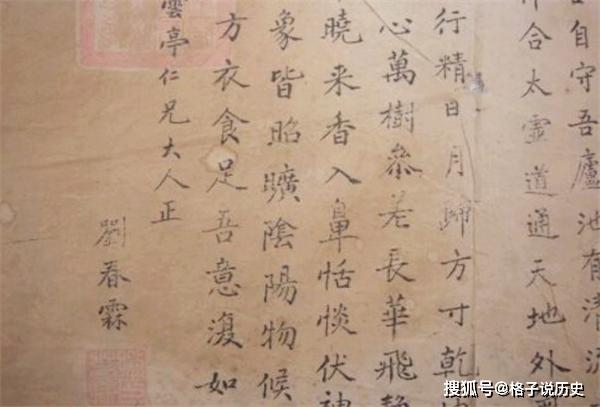 自守吾廬池有清
合太虛道通天地外
行精日月歸方寸乾
心萬樹參差長華飛
曉来香入鼻恬惔伏神
象皆昭曠陰陽物候
方衣食足吾意復如
雲亭仁兄大人正
劉春霖
搜狐号@格子说历史